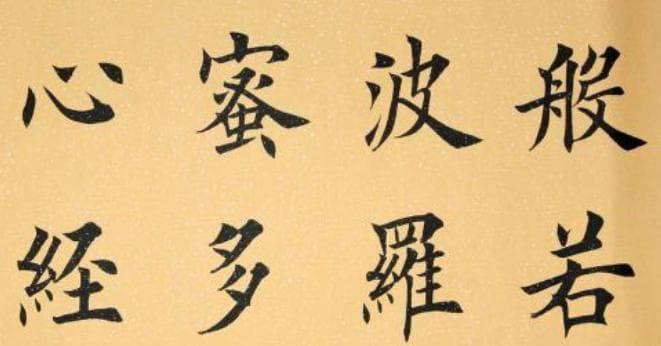 般若
波羅
蜜多
心経